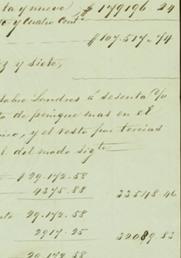 ta y nueve $ 179196 24
o y Cuatro Cent
$ 107.517.74
z y siete,
sobre Londres á sesenta d/v
de penique mas en el
y el resto por tercias
del modo sigte
$ 29.172.58
4375.88 33548.46
29.172.58
2917.25 32089.83
29.172.58